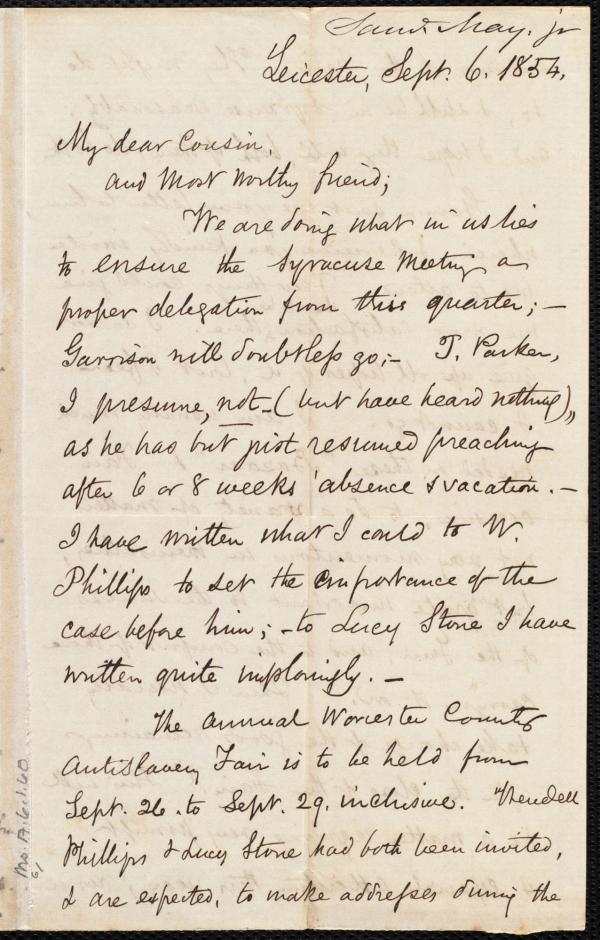 Saml. May, jr
Leicester, Sept. 6. 1854.
My dear Cousin,
and most worthy friend;
We are doing what in us lies
to ensure the Syracuse Meeting a
proper delegation from this quarter; –
Garrison will doubtless go; – T. Parker,
I presume, not – (but have heard nothing),
as he has but just resumed preaching
after 6 or 8 weeks' absence & vacation. –
I have written what I could to W.
Phillips to set the importance of the
case before him; – to Lucy Stone I have
written quite imploringly. –
The annual Worcester County
Antislavery Fair is to be held from
Sept. 26. to Sept. 29. inclusive. Wendell
Phillips & Lucy Stone had both been invited,
& are expected, to make addresses during the
Ms. A.